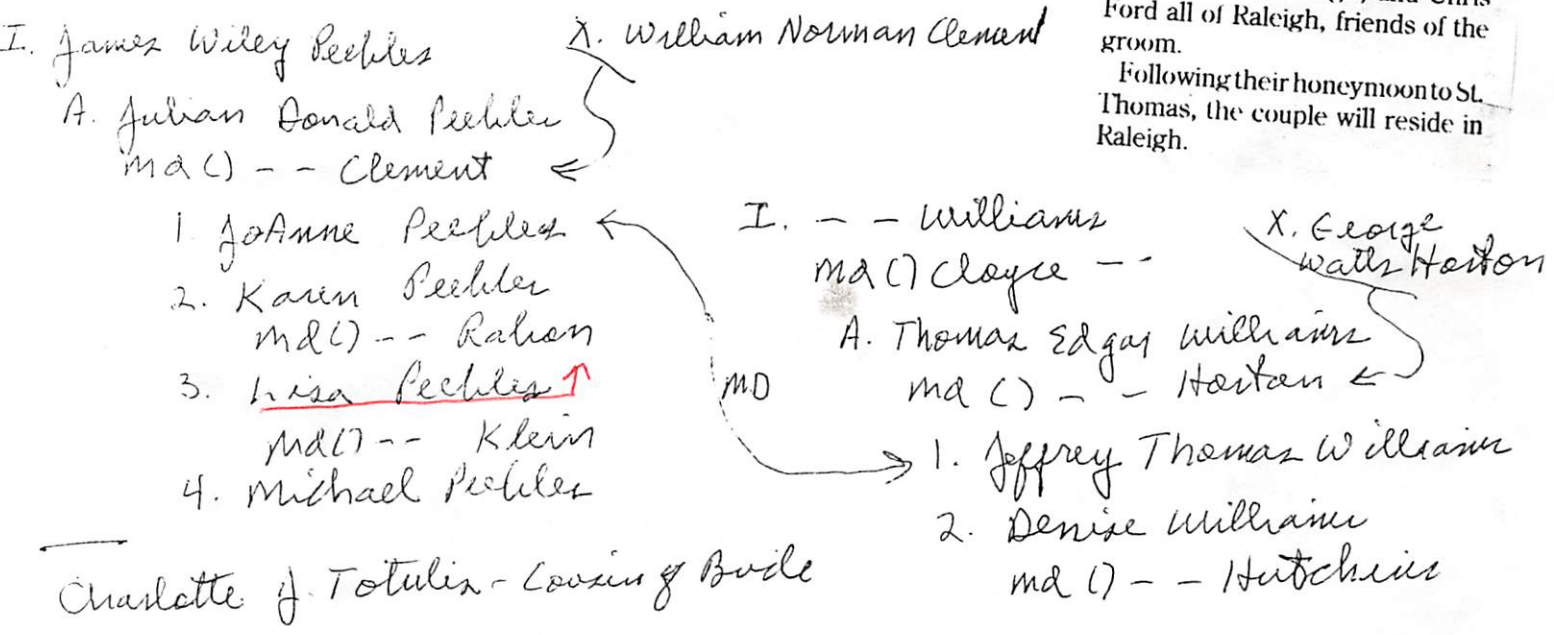 I. James Wiley Peebles
A. Julian Donald Peebles
md () - - Clement
1. JoAnne Peebles
2. Karen Peebles
md () - - Raban
3. Lisa Peebles
md () - - Klein
4. Michael Peebles
Charlotte J. Totulis - Cousin of Bride
X. William Norman Clement
MD
Ford all of Raleigh, friends of the
groom.
Following their honeymoon to St.
Thomas, the couple will reside in
Raleigh.
I. - - Williams
md () Clayce - -
X. George
Watts Horton
A. Thomas Edgar Williams
md () - - Horton
1. Jeffrey Thomas Williams
2. Denise Williams
md () - - Hutchins